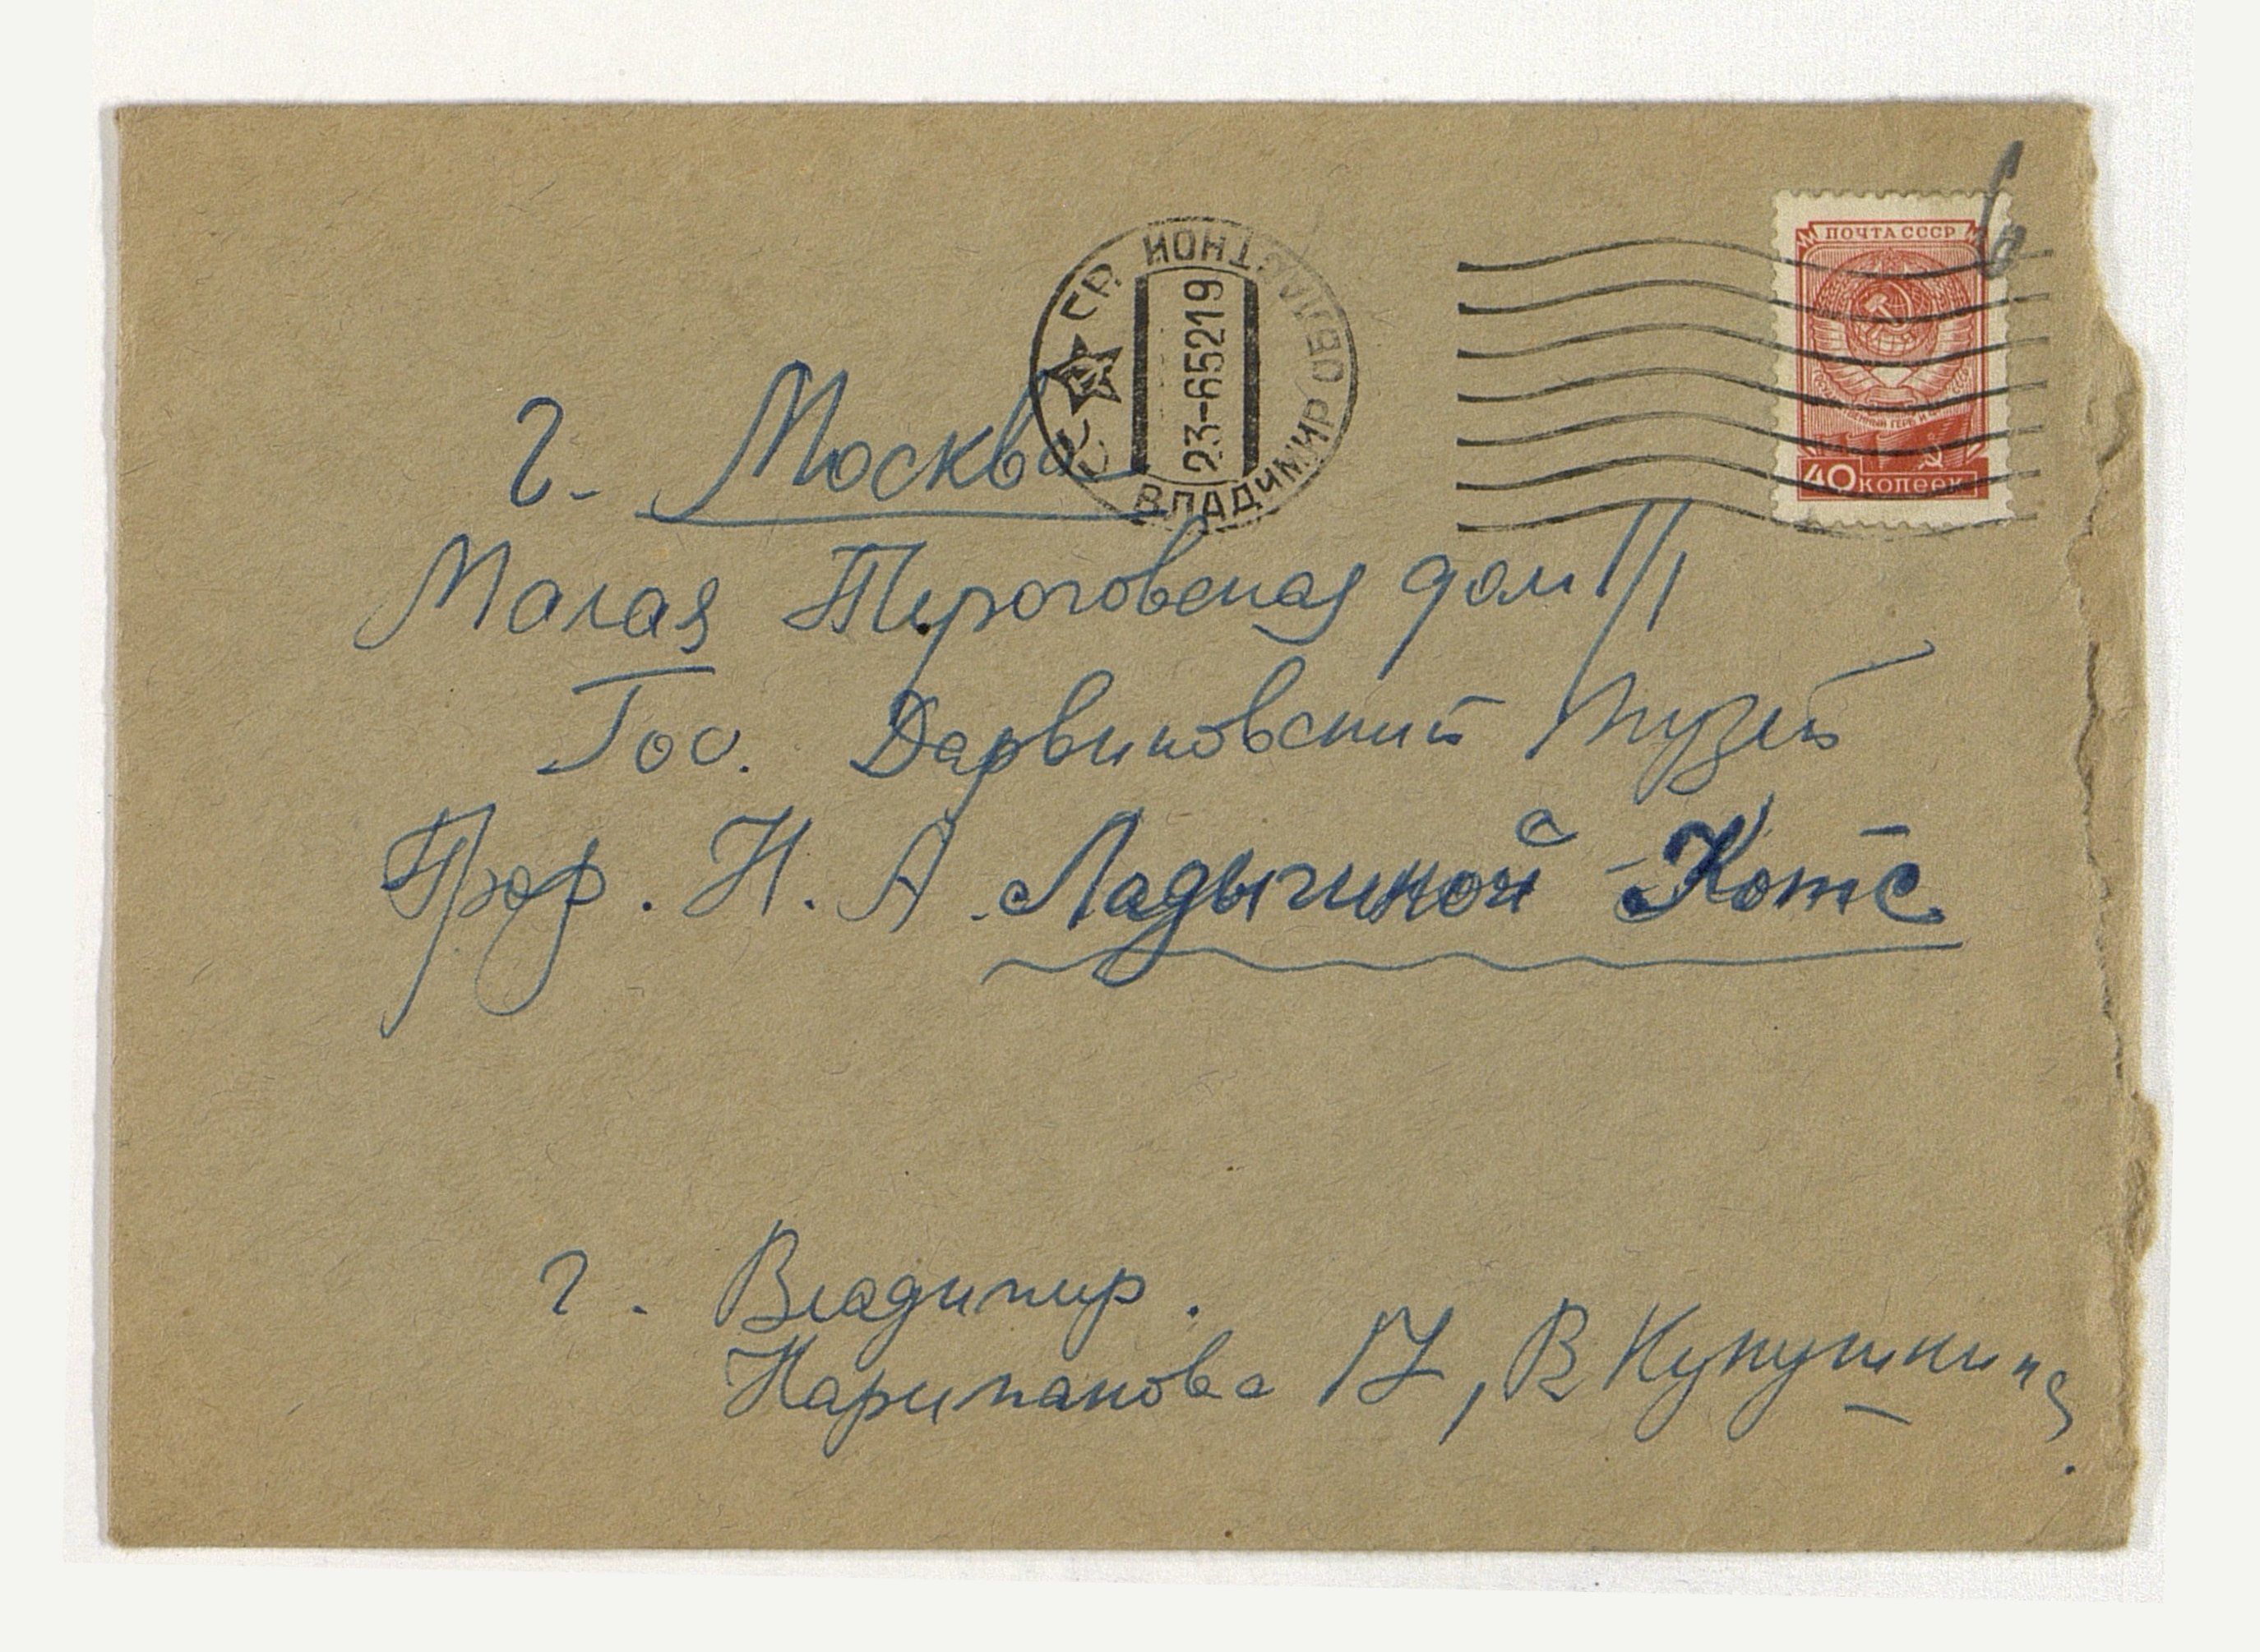 ПОЧТА СССР
40 копеек
СССР
ВЛАДИМИР ОБЛАСТНОЙ
23-65219
г. Москва
Малая Пироговская дом 1/1
Гос. Дарвиновский Музей
Проф. Н. А. Ладыгиной-Котс
г. Владимир.
Нариманова 17, В Кукушкина.